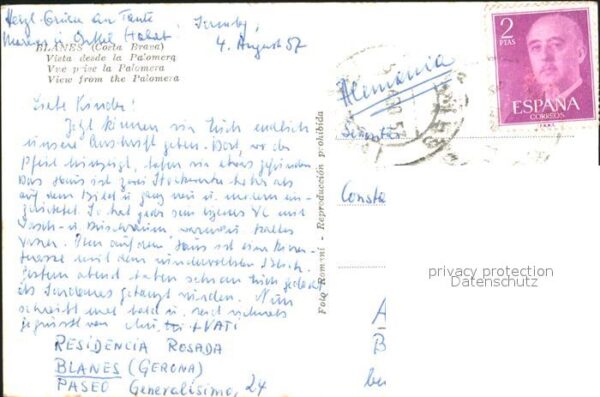 Herzl. Grüße an Tante
Sonntag,
4. August 57
BLANES (Costa Brava)
Vista desde la Palomera
Vue prise la Palomera
View from the Palomera
Liebe Kinder!
Jetzt können wir Euch endlich
unsere Anschrift geben. Dort, wo der
Pfeil hinzeigt, haben wir etwas gefunden.
Das Haus ist zwei Stockwerke höher als
auf dem Bild u. ganz neu u. modern
So hat jedes sein eigenes WC und
Wasch- u.
Wasser. Oben auf dem Haus ist eine
mit dem wundervollen Blick.
Gestern abend haben schon
Sardanes getanzt Nun
schreibt mal bald u. seid vielmals
gegrüßt von + VATI
RESIDENCIA ROSADA
BLANES (GERONA)
PASEO Generalísimo, 24
Foto Romaní - Reproducción prohibida
Alemania
Consta
A
B
be
2
PTAS
ESPAÑA
CORREOS
privacy protection
Datenschutz